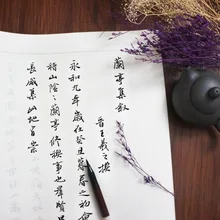 蘭亭集敘
晉王羲之撰
永和九年歲在癸丑暮春之初會
稽山陰之蘭亭修稧事也羣賢
長咸集此地有崇